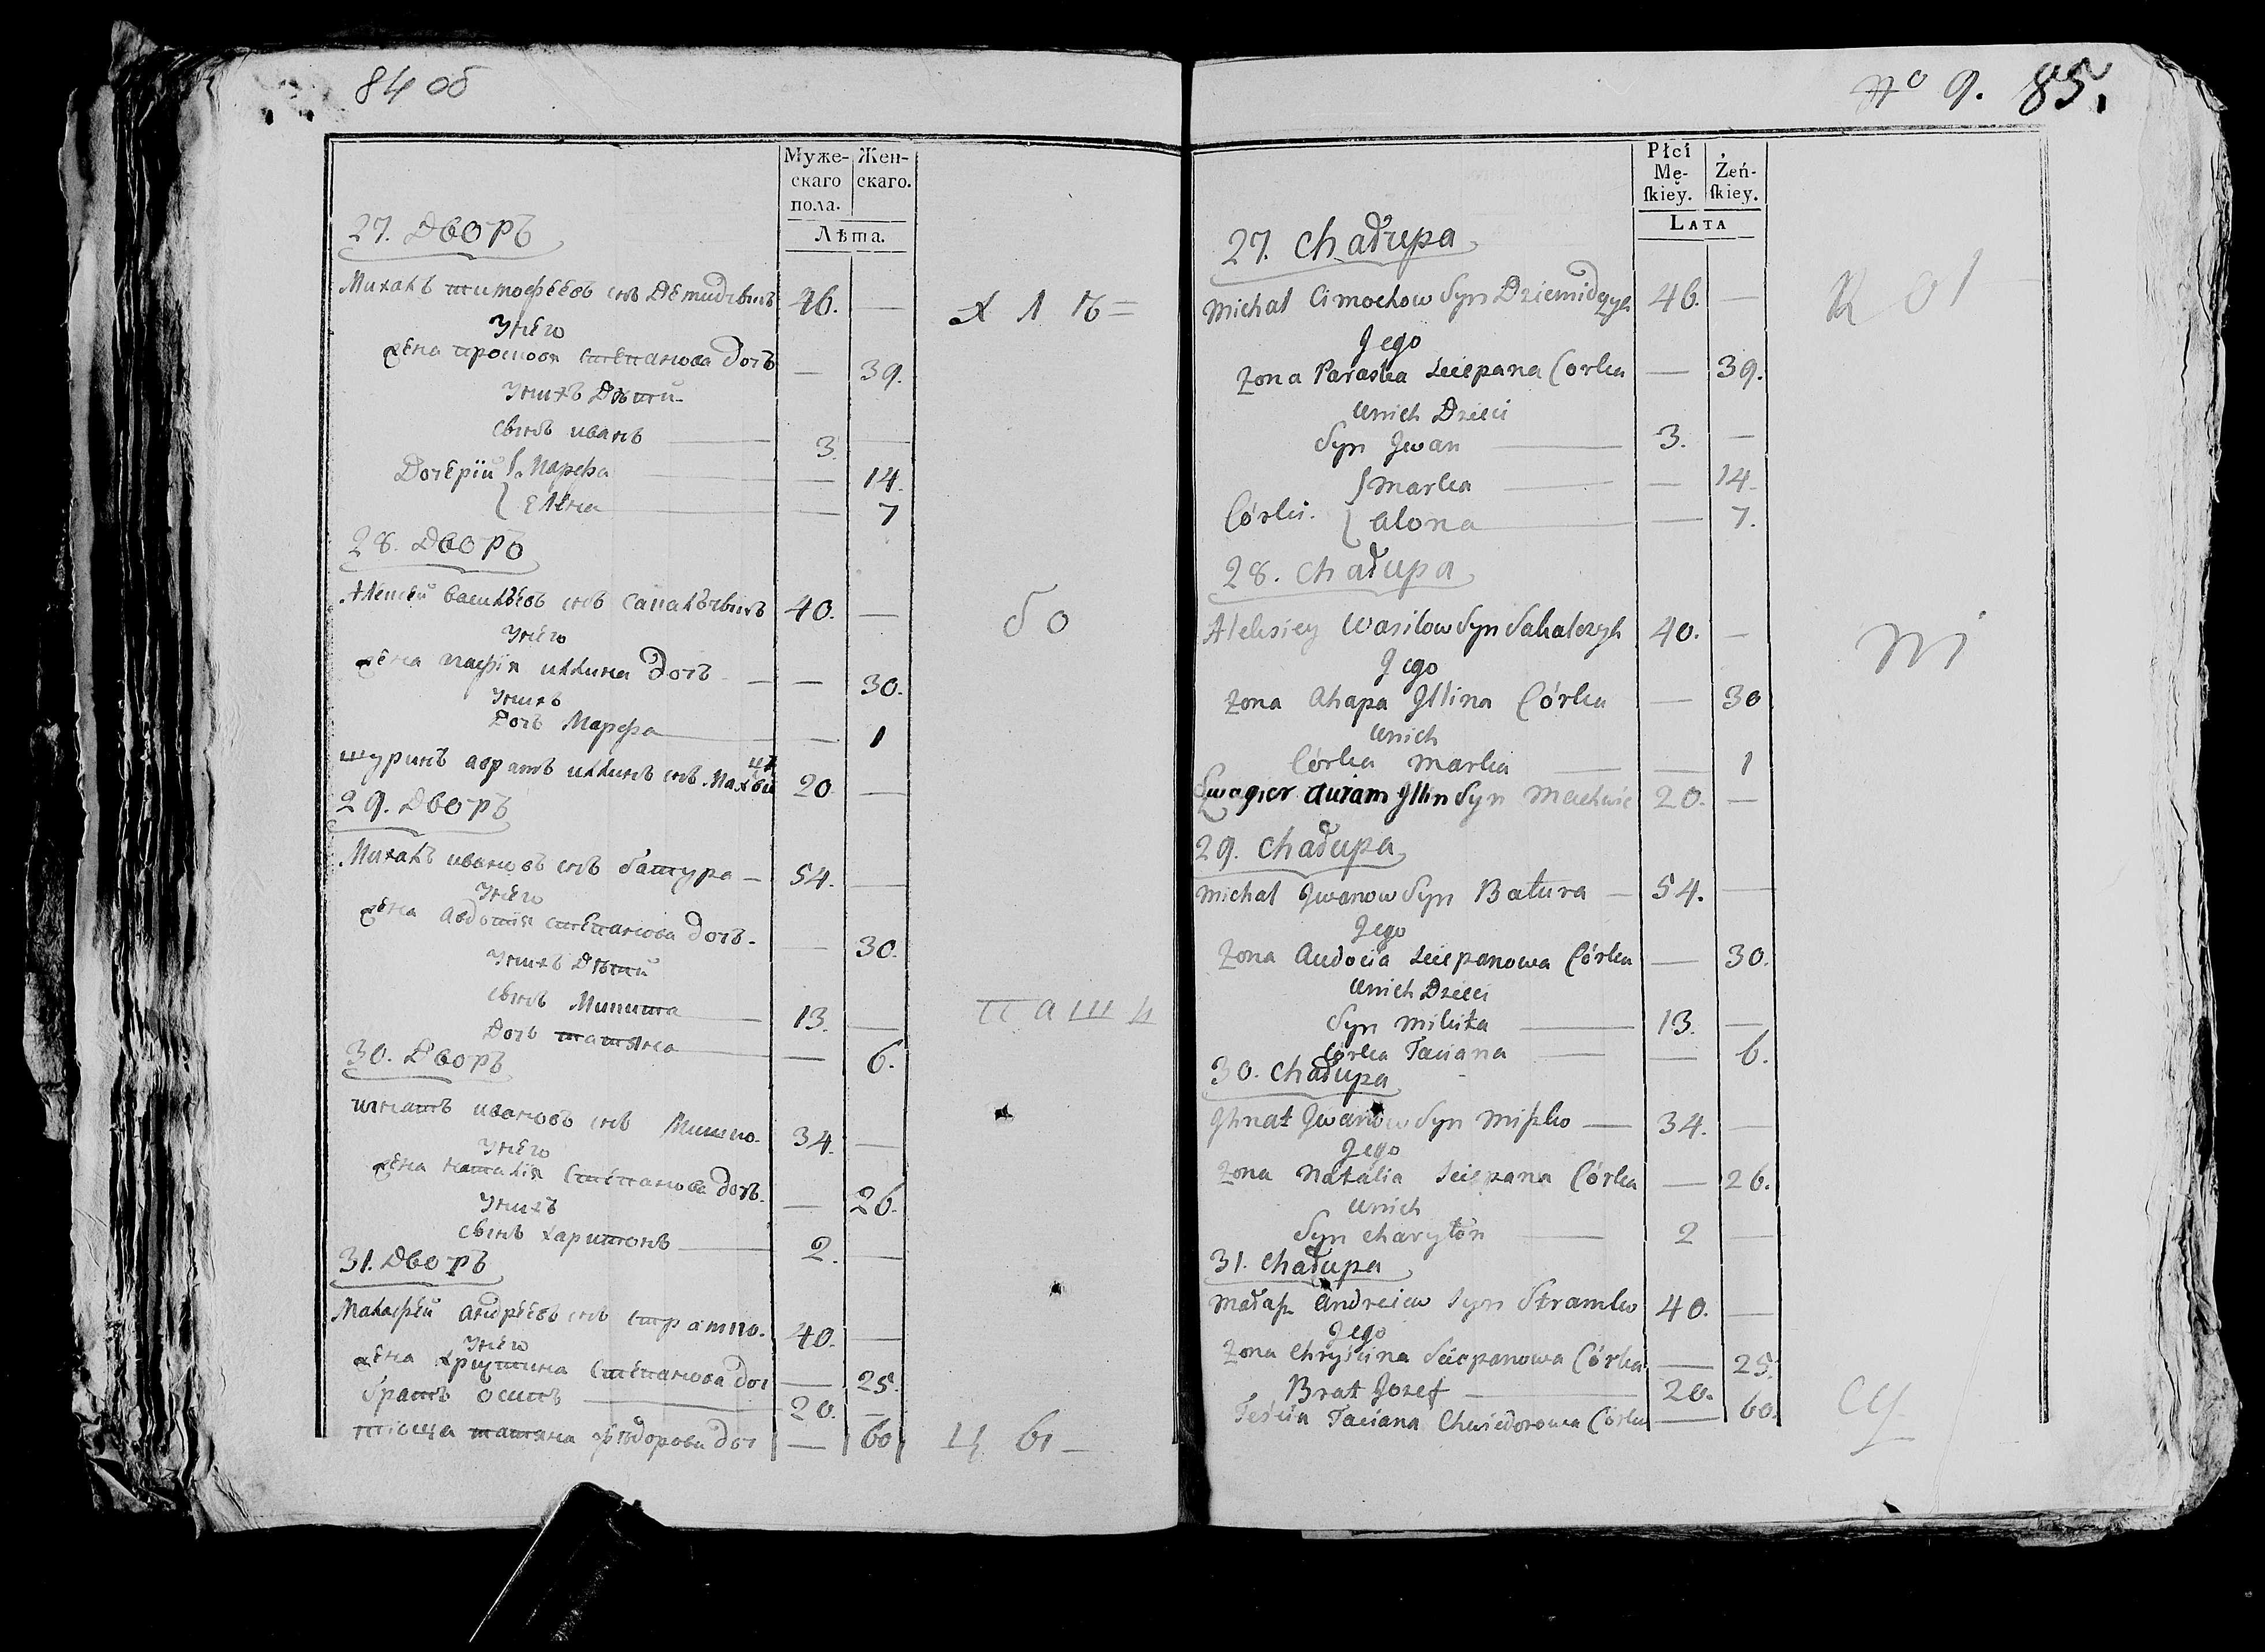 84 об
Муже-
скаго
пола.
Жен-
скаго.
Лѣта.
27. Дворъ
Михалъ тимофѣевъ снъ Демидчикъ 46. —
У него
жена просковя степанова дочь — 39.
У нихъ Дѣти
сынъ иванъ 3. —
Дочерїи Марфа — 14.
Елена — 7
28. Дворъ
Алексей василъевъ снъ сакалъчикъ 40. —
У него
жена агафія иллина дочь — 30.
У нихъ
Дочь Марфа — 1
шуринъ аврамъ иллинъ снъ 20 —
29. Дворъ
Михалъ ивановъ снъ батура — 54. —
У него
жена авдотія степанова дочь — 30.
У нихъ Дѣти
сынъ Микита 13. —
Дочь татяна — 6.
30. Дворъ
игнатъ ивановъ снъ Мишко 34. —
У него
жена наталія степанова дочь — 26.
У нихъ
сынъ харитонъ 2. —
31. Дворъ
Малафей андрѣевъ снъ страмко. 40. —
У него
жена христина степанова доч — 25.
братъ осипъ 20. —
тіоща татяна фѣдорова доч — 60
бо
паши
No 9. 85.
Płci
Mę-
ſkiey.
Żeń-
ſkiey.
LATA
27. Chałupa
Michał Cimochow Syn Dziemidczyk 46. —
Jego
Zona Paraska Sciepana Corka — 39.
U nich Dzieci
Syn Jwan 3. —
Marka — 14.
Córki. Alona — 7.
28. Chałupa
Aleksiey Wasilow Syn Sakalczyk 40. —
Jego
Zona Ahapa Jllina Córka — 30
U nich
Córka Marka — 1
Szwagier Auram Jllin Syn 20. —
29. Chałupa
Michał Jwanow Syn Batura — 54. —
Jego
Zona Audocia Sciepanowa Córka — 30.
U nich Dzieci
Syn Mikita 13. —
Córka Taciana — 6.
30. Chałupa
Jhnat Jwanow Syn Miszko — 34. —
Jego
Zona Natalia Sciepana Córka — 26.
U nich
Syn Charyton 2 —
31. Chałupa
Andreiew Syn Stramko 40. —
Jego
Zona Chryścina Sciepanowa Córka — 25.
Brat Jozef 20.
Teścia Taciana Chwiedorowa Córka — 60.